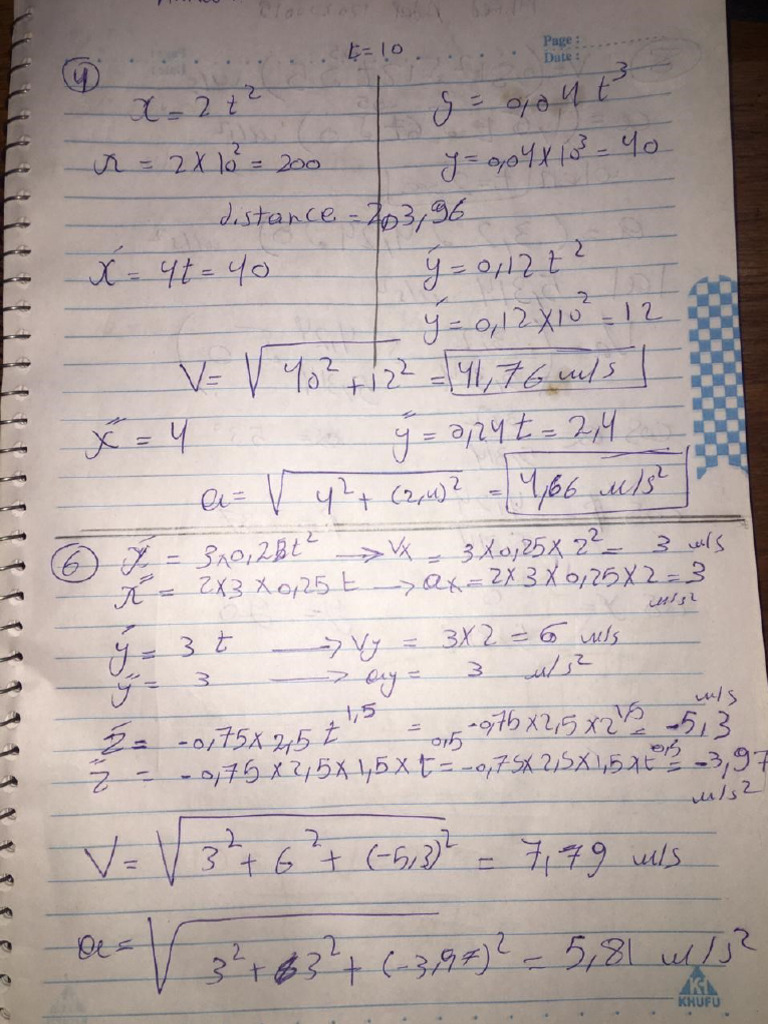 Page:
t=10
Date:
4
x = 2t²
y = 0,04 t³
x = 2×10² = 200
y = 0,04×10³ = 40
distance = 203,96
x́ = 4t = 40
ý = 0,12 t²
ý = 0,12×10² = 12
V = √40² + 12² = 41,76 m/s
x̋ = 4
y̋ = 0,24 t = 2,4
a = √4² + (2,4)² = 4,66 m/s²
6
x́ = 3×0,25t² → Vx = 3×0,25×2² = 3 m/s
x̋ = 2×3×0,25 t → ax = 2×3×0,25×2 = 3 m/s²
ý = 3 t → Vy = 3×2 = 6 m/s
y̋ = 3 → ay = 3 m/s²
ź = -0,75×2,5 t^1,5 = -0,75×2,5×2^1,5 = -5,3 m/s
z̋ = -0,75×2,5×1,5×t^0,5 = -0,75×2,5×1,5×t^0,5 = -3,97 m/s²
V = √3² + 6² + (-5,3)² = 7,79 m/s
a = √3² + 3² + (-3,97)² = 5,81 m/s²
KH
KHUFU